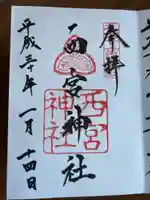 奉拝
西宮神社
西宮
神社
平成三十年一月十四日